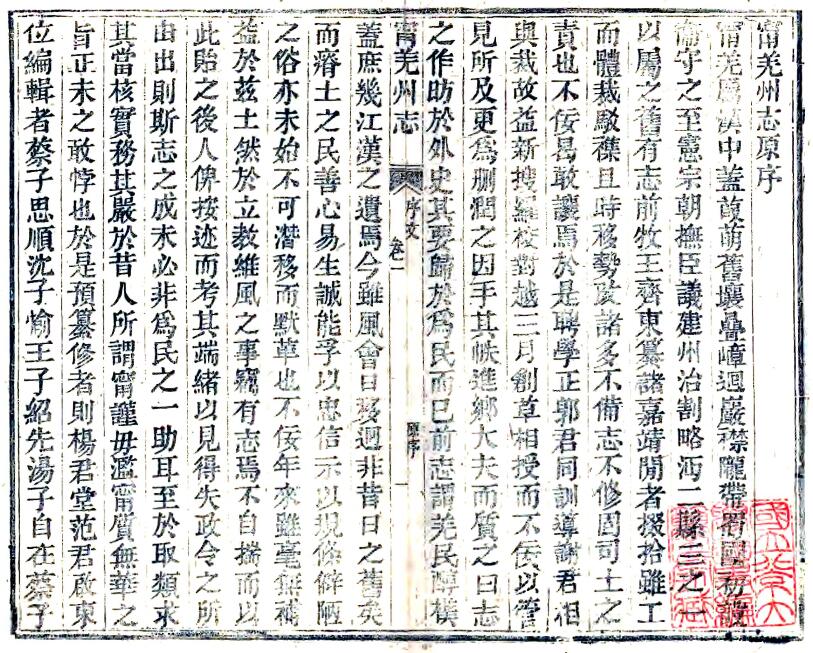 甯羌州志原序
甯羌屬漢中蓋葭萌舊壤疊嶂迴巖襟隴帶蜀國初設
衞守之至憲宗朝撫臣議建州治割略沔二縣三之一
以屬之舊有志前牧王齊東纂諸嘉靖閒者掇拾雖工
而體裁駁襍且時移勢改諸多不備志不修固司土之
責也不佞曷敢讓焉於是聘學正郭君同訓導謝君相
與裁故益新搜羅校對越三月創草相授而不佞以管
見所及更爲删潤之因手其帙進鄉大夫而質之曰志
之作昉於外史其要歸於爲民而已前志謂羌民醇樸
甯羌州志 序文 卷一 原序 一
蓋庶幾江漢之遺焉今雖風會日移迥非昔日之舊矣
而瘠土之民善心易生誠能孚以忠信示以規條僻陋
之俗亦未始不可潛移而默革也不佞年來雖毫無補
益於兹土然於立教維風之事竊有志焉不自揣而以
此貽之後人俾按迹而考其端緒以見得失政令之所
由出則斯志之成未必非爲民之一助耳至於取類求
其當核實務其嚴於昔人所謂甯謹毋濫甯質無華之
旨正未之敢悖也於是預纂修者則楊君堂范君啟東
位編輯者蔡子思順沈子愉王子紹先湯子自在蔡子